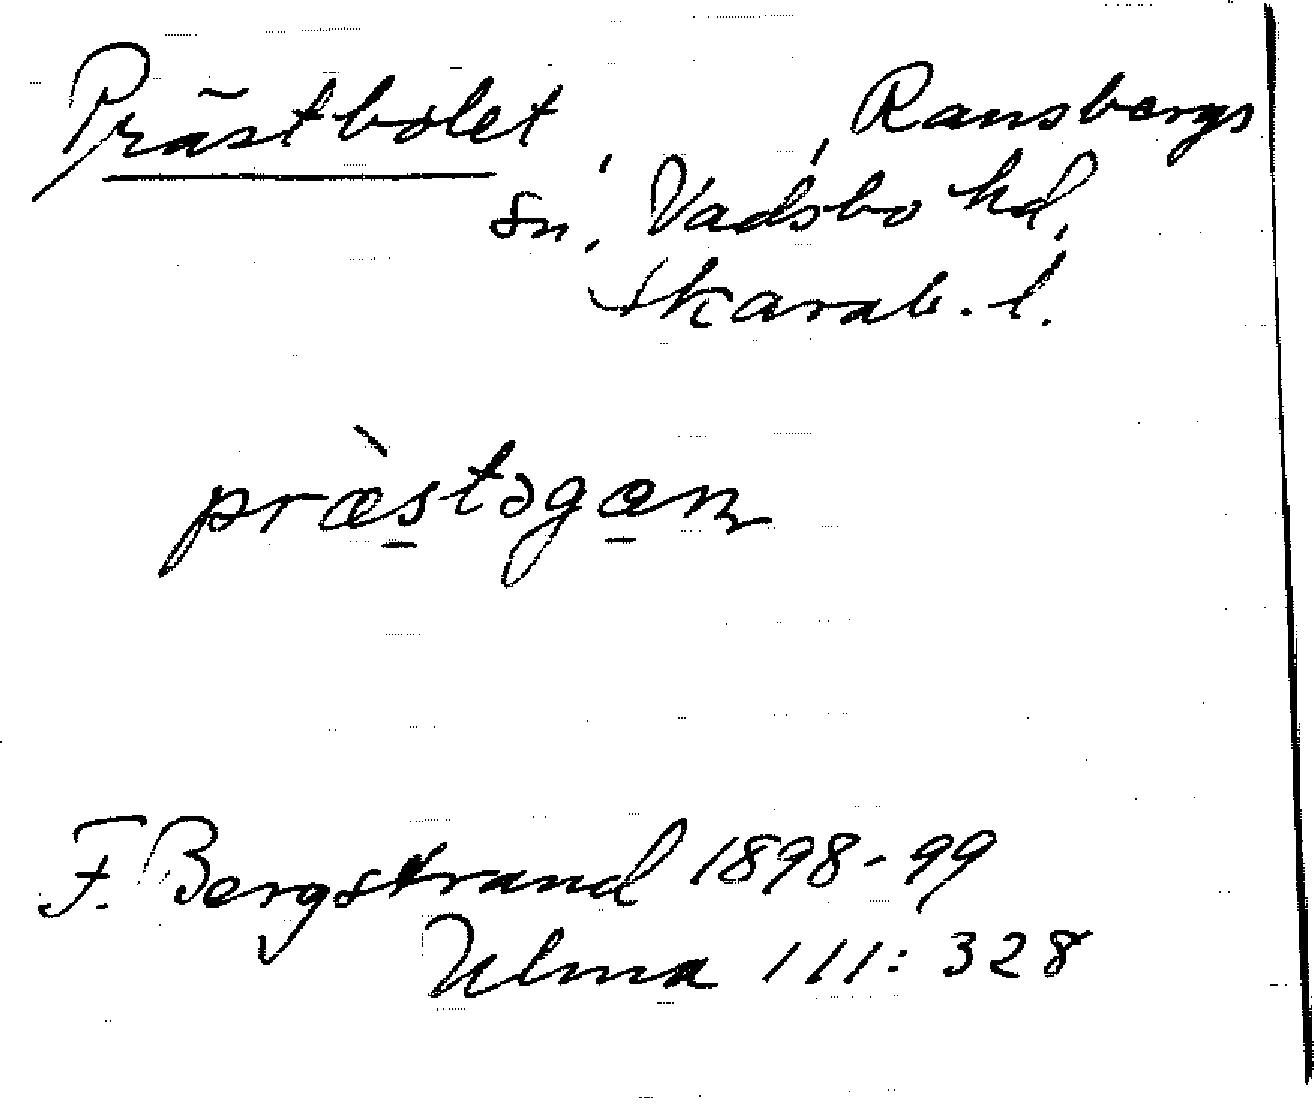 Prästbolet
Ransbergs
sn, Vadsbo hd,
Skarab. l.
præ̀stəgan
F. Bergstrand 1898-99
Ulma 111:328